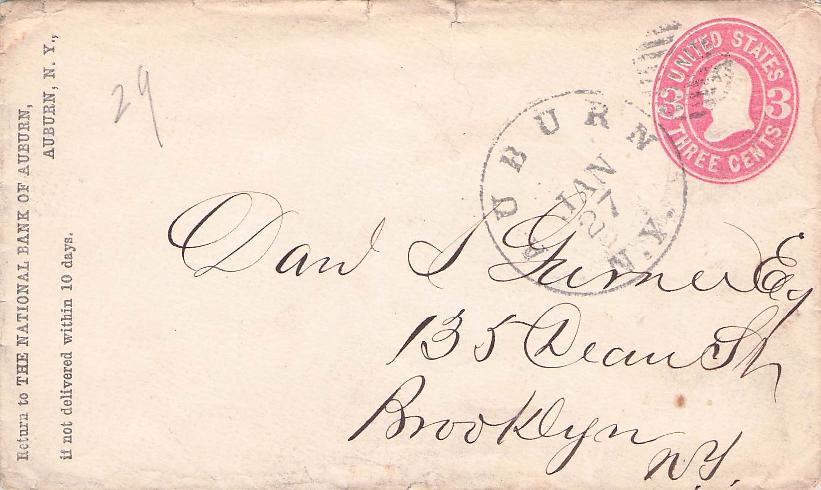 Return to THE NATIONAL BANK OF AUBURN,
AUBURN, N. Y.,
if not delivered within 10 days.
29
AUBURN
N.Y.
JAN
27
UNITED STATES
3 3
THREE CENTS
S Esq
135 Dean St
Brooklyn
N.Y.